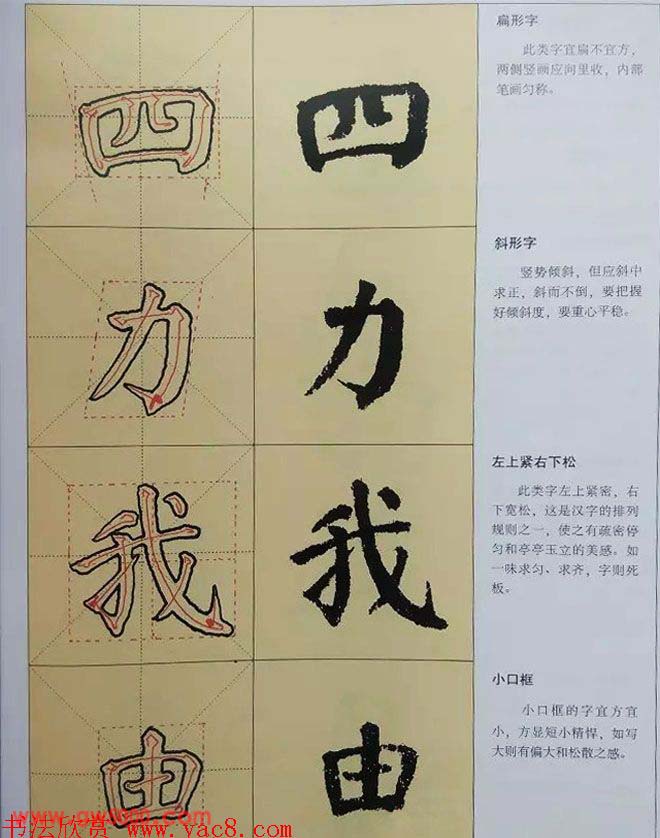 四
四
扁形字
此类字宜扁不宜方，
两侧竖画应向里收，内部
笔画匀称。
力
力
斜形字
竖势倾斜，但应斜中
求正，斜而不倒，要把握
好倾斜度，要重心平稳。
我
我
左上紧右下松
此类字左上紧密，右
下宽松，这是汉字的排列
规则之一，使之有疏密停
匀和亭亭玉立的美感。如
一味求匀、求齐，字则死
板。
由
由
小口框
小口框的字宜方宜
小，方显短小精悍，如写
大则有偏大和松散之感。
书法欣赏 www.yac8.com